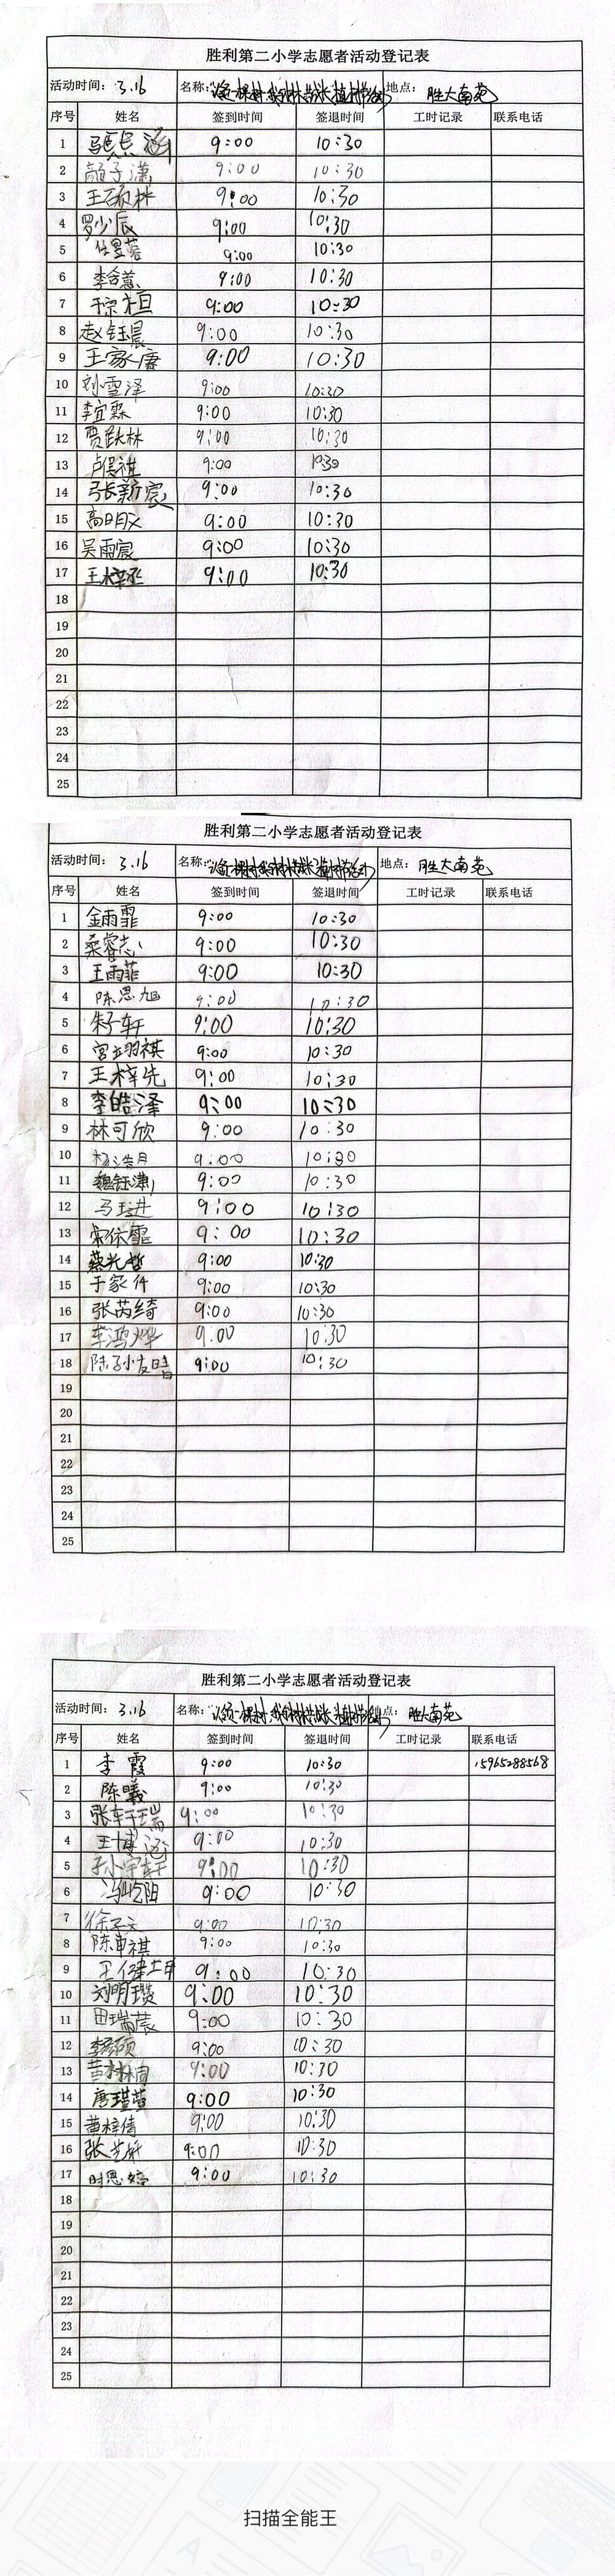 胜利第二小学志愿者活动登记表
活动时间： 3.16 名称： 地点： 胜大南苑
序号 姓名 签到时间 签退时间 工时记录 联系电话
1 涵 9:00 10:30
2 颜子潇 9:00 10:30
3 王硕林 9:00 10:30
4 罗少辰 9:00 10:30
5 任昱蓉 9:00 10:30
6 李含蕙 9:00 10:30
7 于宗桓 9:00 10:30
8 赵钰晨 9:00 10:30
9 王家廉 9:00 10:30
10 刘雪泽 9:00 10:30
11 李宜霖 9:00 10:30
12 贾跃林 9:00 10:30
13 卢俣祉 9:00 10:30
14 张新宸 9:00 10:30
15 高明义 9:00 10:30
16 吴雨宸 9:00 10:30
17 王梓丞 9:00 10:30
18
19
20
21
22
23
24
25
胜利第二小学志愿者活动登记表
活动时间： 3.16 名称： 地点： 胜大南苑
序号 姓名 签到时间 签退时间 工时记录 联系电话
1 金雨霏 9:00 10:30
2 桑睿志 9:00 10:30
3 王雨菲 9:00 10:30
4 陈思旭 9:00 10:30
5 朱子轩 9:00 10:30
6 宫翊祺 9:00 10:30
7 王梓先 9:00 10:30
8 李皓泽 9:00 10:30
9 林可欣 9:00 10:30
10 杨浩月 9:00 10:30
11 魏钰潇 9:00 10:30
12 马珏进 9:00 10:30
13 宋依霏 9:00 10:30
14 蔡光哲 9:00 10:30
15 于家仟 9:00 10:30
16 张芮绮 9:00 10:30
17 车鸿烨 9:00 10:30
18 陆孙友晴 9:00 10:30
19
20
21
22
23
24
25
胜利第二小学志愿者活动登记表
活动时间： 3.16 名称： 地点： 胜大南苑
序号 姓名 签到时间 签退时间 工时记录 联系电话
1 李霞 9:00 10:30 15965288568
2 陈曦 9:00 10:30
3 张车玉瑞 9:00 10:30
4 王博涵 9:00 10:30
5 孙宇轩 9:00 10:30
6 冯屹阳 9:00 10:30
7 徐子文 9:00 10:30
8 陈申祺 9:00 10:30
9 王 9:00 10:30
10 刘明璞 9:00 10:30
11 田瑞晨 9:00 10:30
12 李硕 9:00 10:30
13 黄林桐 9:00 10:30
14 唐瑾萱 9:00 10:30
15 黄梓倩 9:00 10:30
16 张艺轩 9:00 10:30
17 时恩婷 9:00 10:30
18
19
20
21
22
23
24
25
扫描全能王